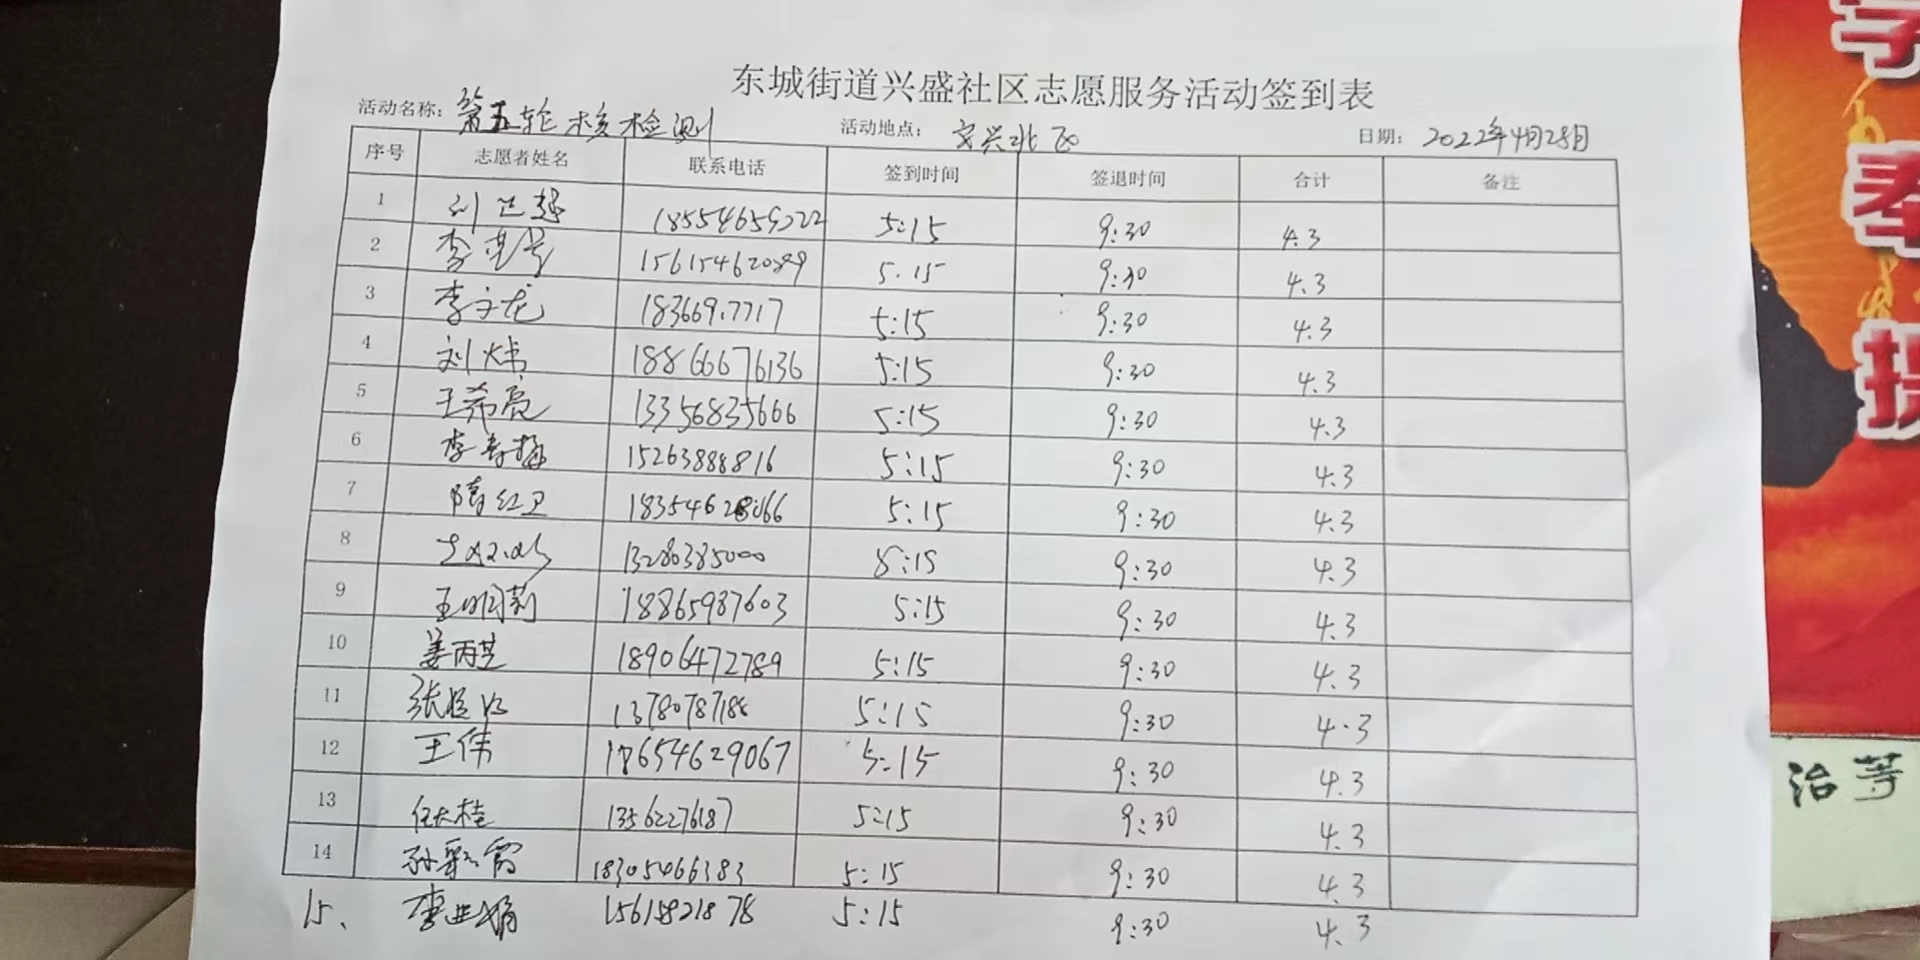 东城街道兴盛社区志愿服务活动签到表
活动名称: 第五轮核检测 活动地点: 兴北区 日期: 2022年4月28日
序号 志愿者姓名 联系电话 签到时间 签退时间 合计 备注
1 刘卫强 5:15 9:30 4.3
2 李 15615462089 5:15 9:30 4.3
3 李文龙 183669.7717 5:15 9:30 4.3
4 刘炜 18866676136 5:15 9:30 4.3
5 王希亮 13356835666 5:15 9:30 4.3
6 李寿梅 15263888816 5:15 9:30 4.3
7 隋红卫 5:15 9:30 4.3
8 13280385000 5:15 9:30 4.3
9 王明莉 18865987603 5:15 9:30 4.3
10 姜丙芝 18906472789 5:15 9:30 4.3
11 张 13780787188 5:15 9:30 4.3
12 王伟 18654629067 5:15 9:30 4.3
13 任桂 13562276187 5:15 9:30 4.3
14 孙彩霞 18305466383 5:15 9:30 4.3
15、 李娟 15615821878 5:15 9:30 4.3
奉
治等